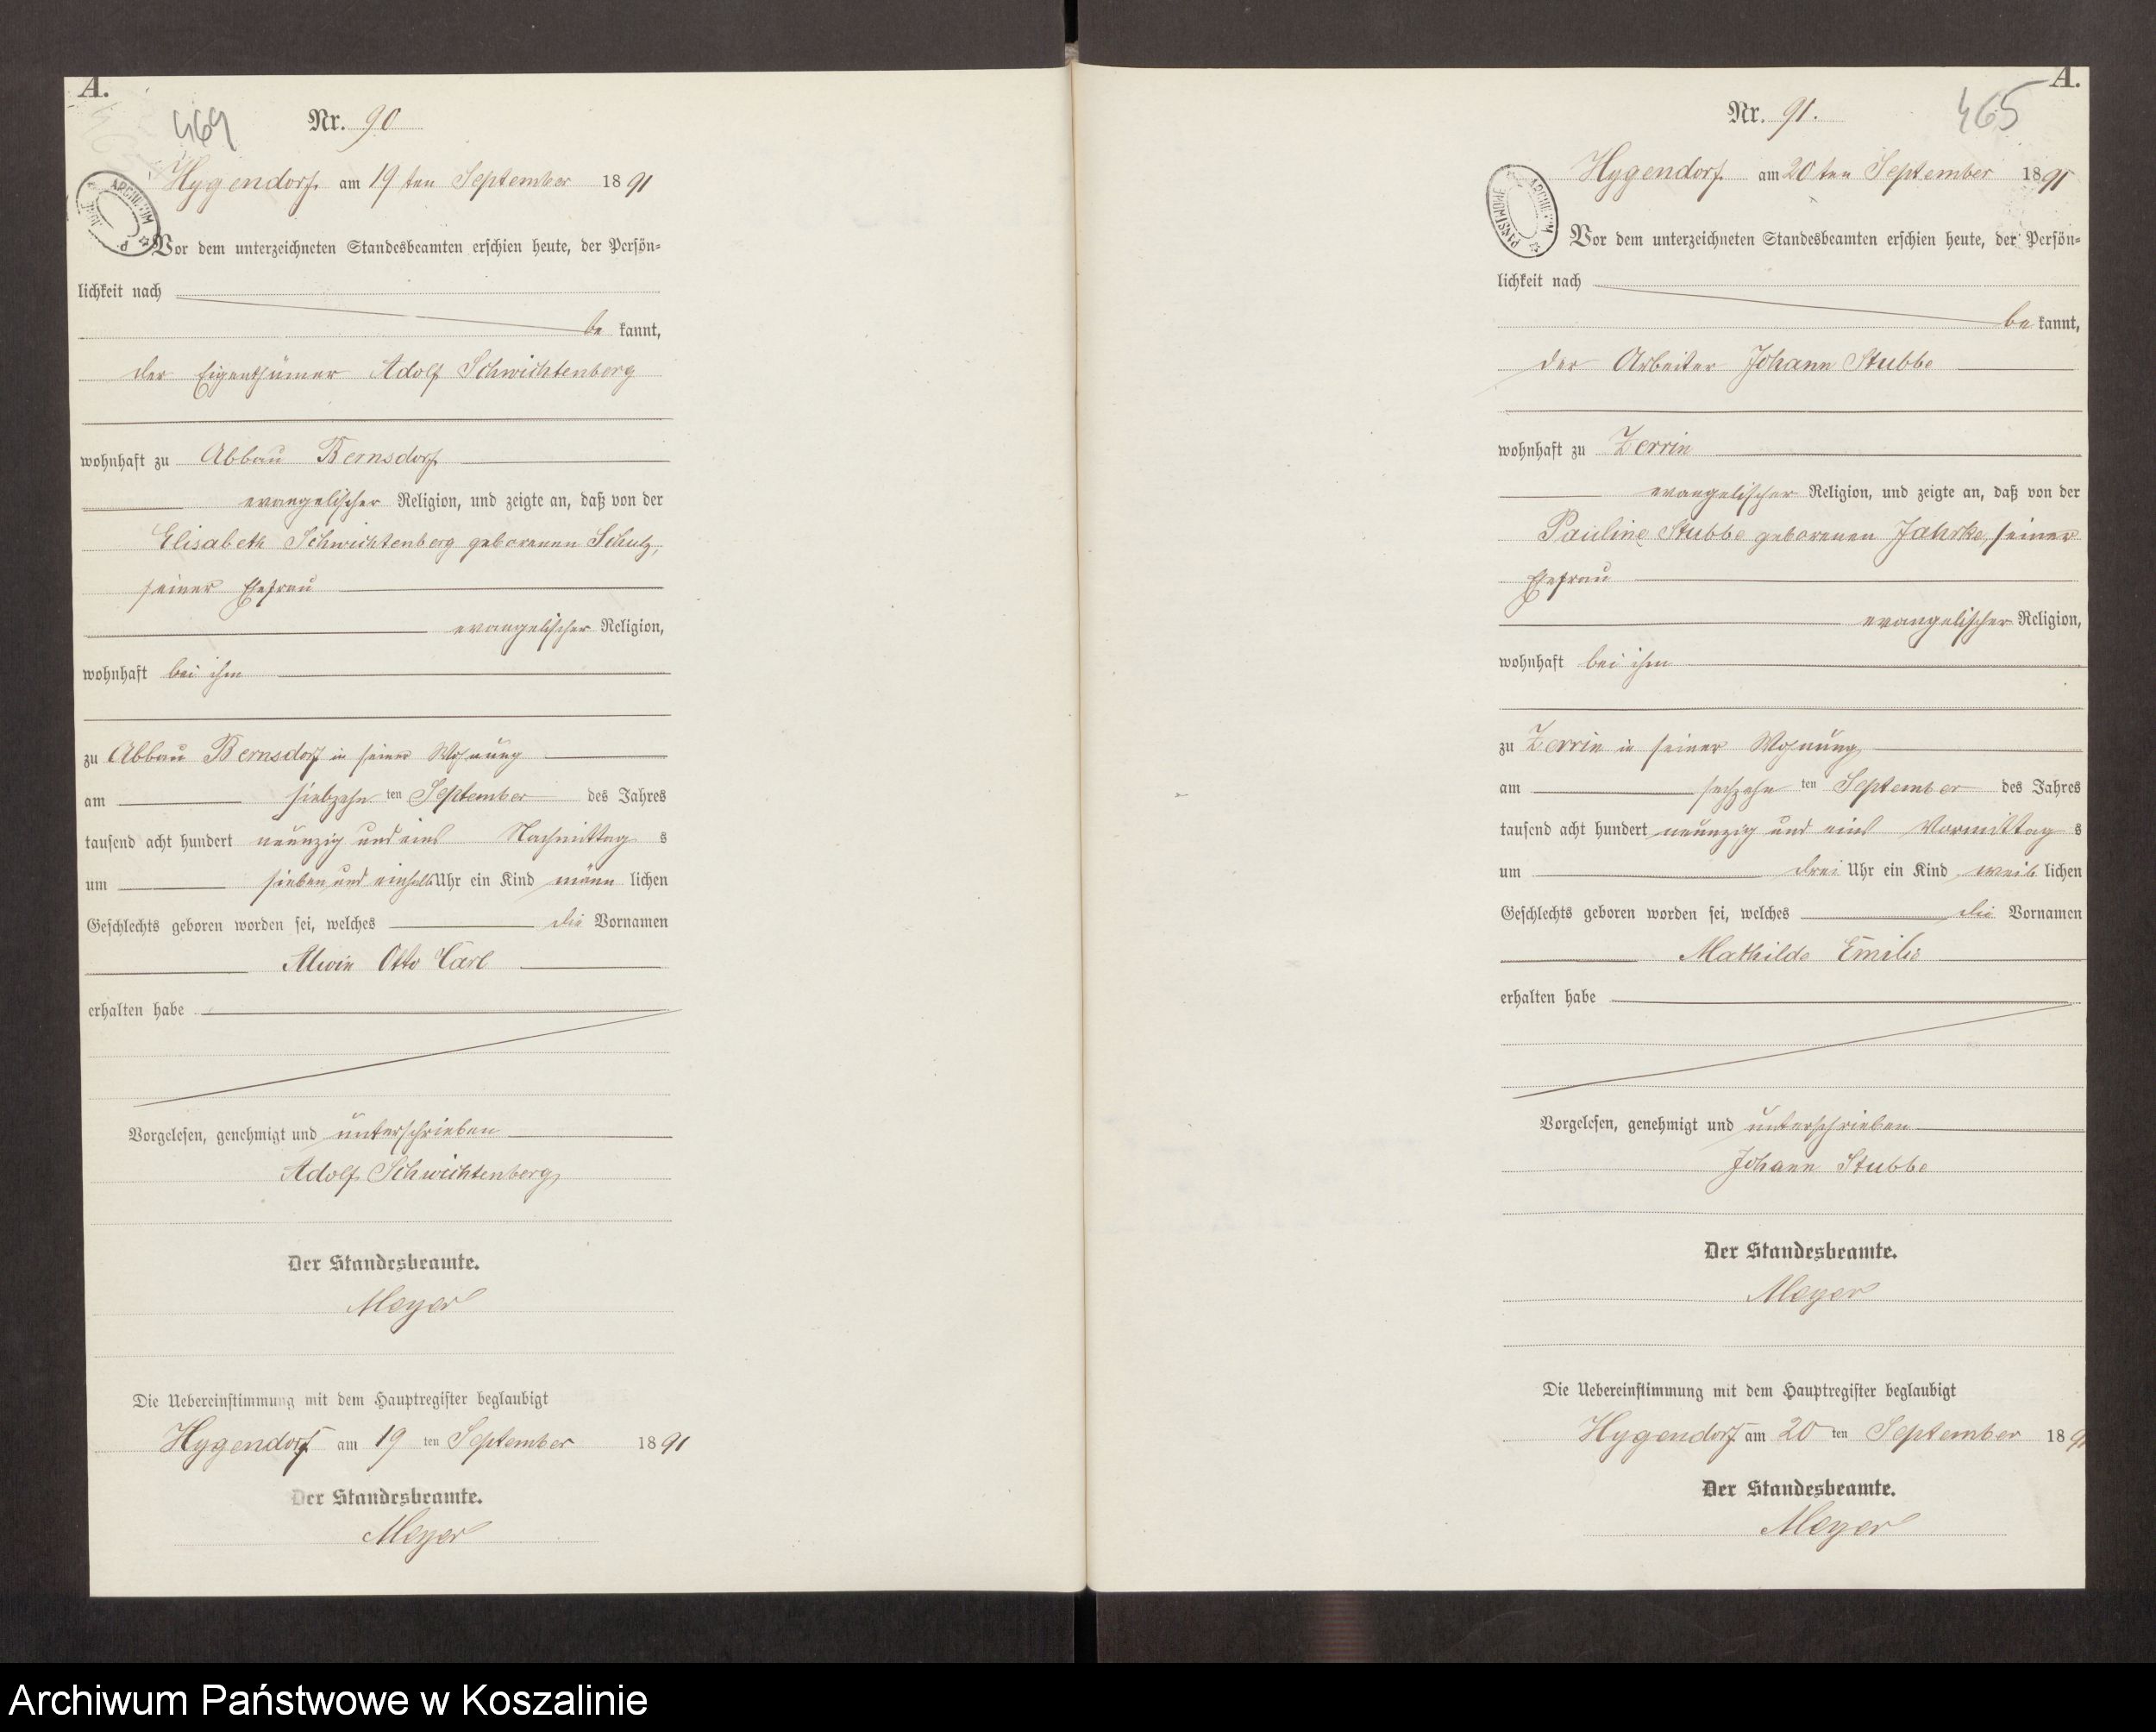 A.
464
Nr. 90
Hygendorf am 19 ten September 1891
ARCHIWUM
Vor dem unterzeichneten Standesbeamten erschien heute, der Persön=
lichkeit nach
be kannt,
der Eigenthümer Adolf Schwichtenberg
wohnhaft zu Abbau Bernsdorf
evangelischer Religion, und zeigte an, daß von der
Elisabeth Schwichtenberg geborenen Schulz,
seiner Ehefrau
evangelischer Religion,
wohnhaft bei ihm
zu Abbau Bernsdorf in seiner Wohnung
am siebzehn ten September des Jahres
tausend acht hundert neunzig und eins Nachmittag s
um sieben und einhalb Uhr ein Kind männ lichen
Geschlechts geboren worden sei, welches die Vornamen
Alwin Otto Carl
erhalten habe
Vorgelesen, genehmigt und unterschrieben
Adolf Schwichtenberg
Der Standesbeamte.
Meyer
Die Uebereinstimmung mit dem Hauptregister beglaubigt
Hygendorf am 19 ten September 1891
Der Standesbeamte.
Meyer
A.
465
Nr. 91.
Hygendorf am 20 ten September 1891
ARCHIWUM PAŃSTWOWE
Vor dem unterzeichneten Standesbeamten erschien heute, der Persön=
lichkeit nach
be kannt,
der Arbeiter Johann Stubbe
wohnhaft zu Zerrin
evangelischer Religion, und zeigte an, daß von der
Pauline Stubbe geborenen Jahrke, seiner
Ehefrau
evangelischer Religion,
wohnhaft bei ihm
zu Zerrin in seiner Wohnung
am sechzehn ten September des Jahres
tausend acht hundert neunzig und eins Vormittag s
um drei Uhr ein Kind weib lichen
Geschlechts geboren worden sei, welches die Vornamen
Mathilde Emilie
erhalten habe
Vorgelesen, genehmigt und unterschrieben
Johann Stubbe
Der Standesbeamte.
Meyer
Die Uebereinstimmung mit dem Hauptregister beglaubigt
Hygendorf am 20 ten September 189
Der Standesbeamte.
Meyer
Archiwum Państwowe w Koszalinie